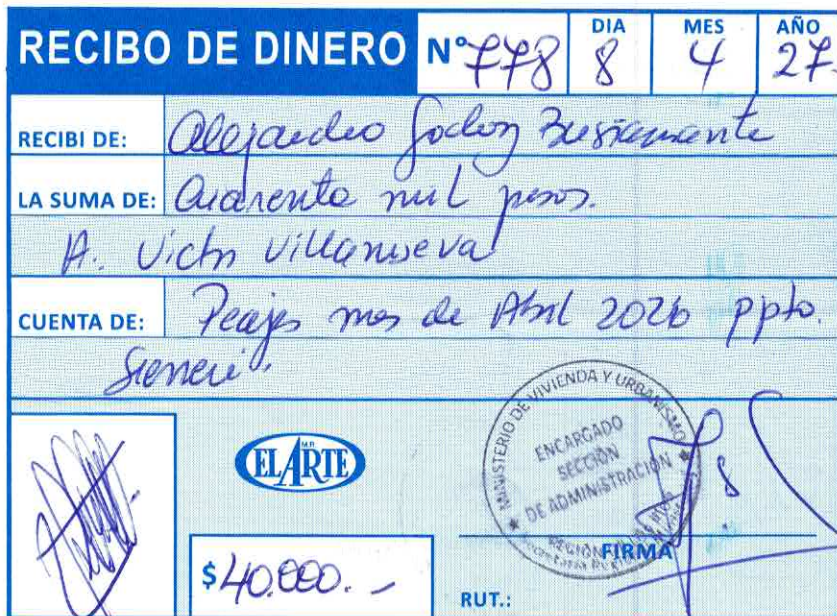 RECIBO DE DINERO N° 778 DIA 8 MES 4 AÑO 27.
RECIBI DE: Alejandro Godoy Bustamante
LA SUMA DE: Cuarenta mil pesos.
A. Victor Villanueva
CUENTA DE: Peajes mes de Abril 2026 ppto.
M.R.
EL ARTE
MINISTERIO DE VIVIENDA Y URBANISMO
ENCARGADO
SECCIÓN
DE ADMINISTRACIÓN
REGIÓN
$ 40.000.-
FIRMA
RUT.: